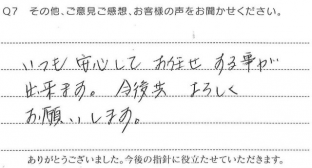 Q7 その他、ご意見ご感想、お客様の声をお聞かせください。
いつも安心してお任せする事が
出来ます。今後共よろしく
お願いします。
ありがとうございました。今後の指針に役立たせていただきます。